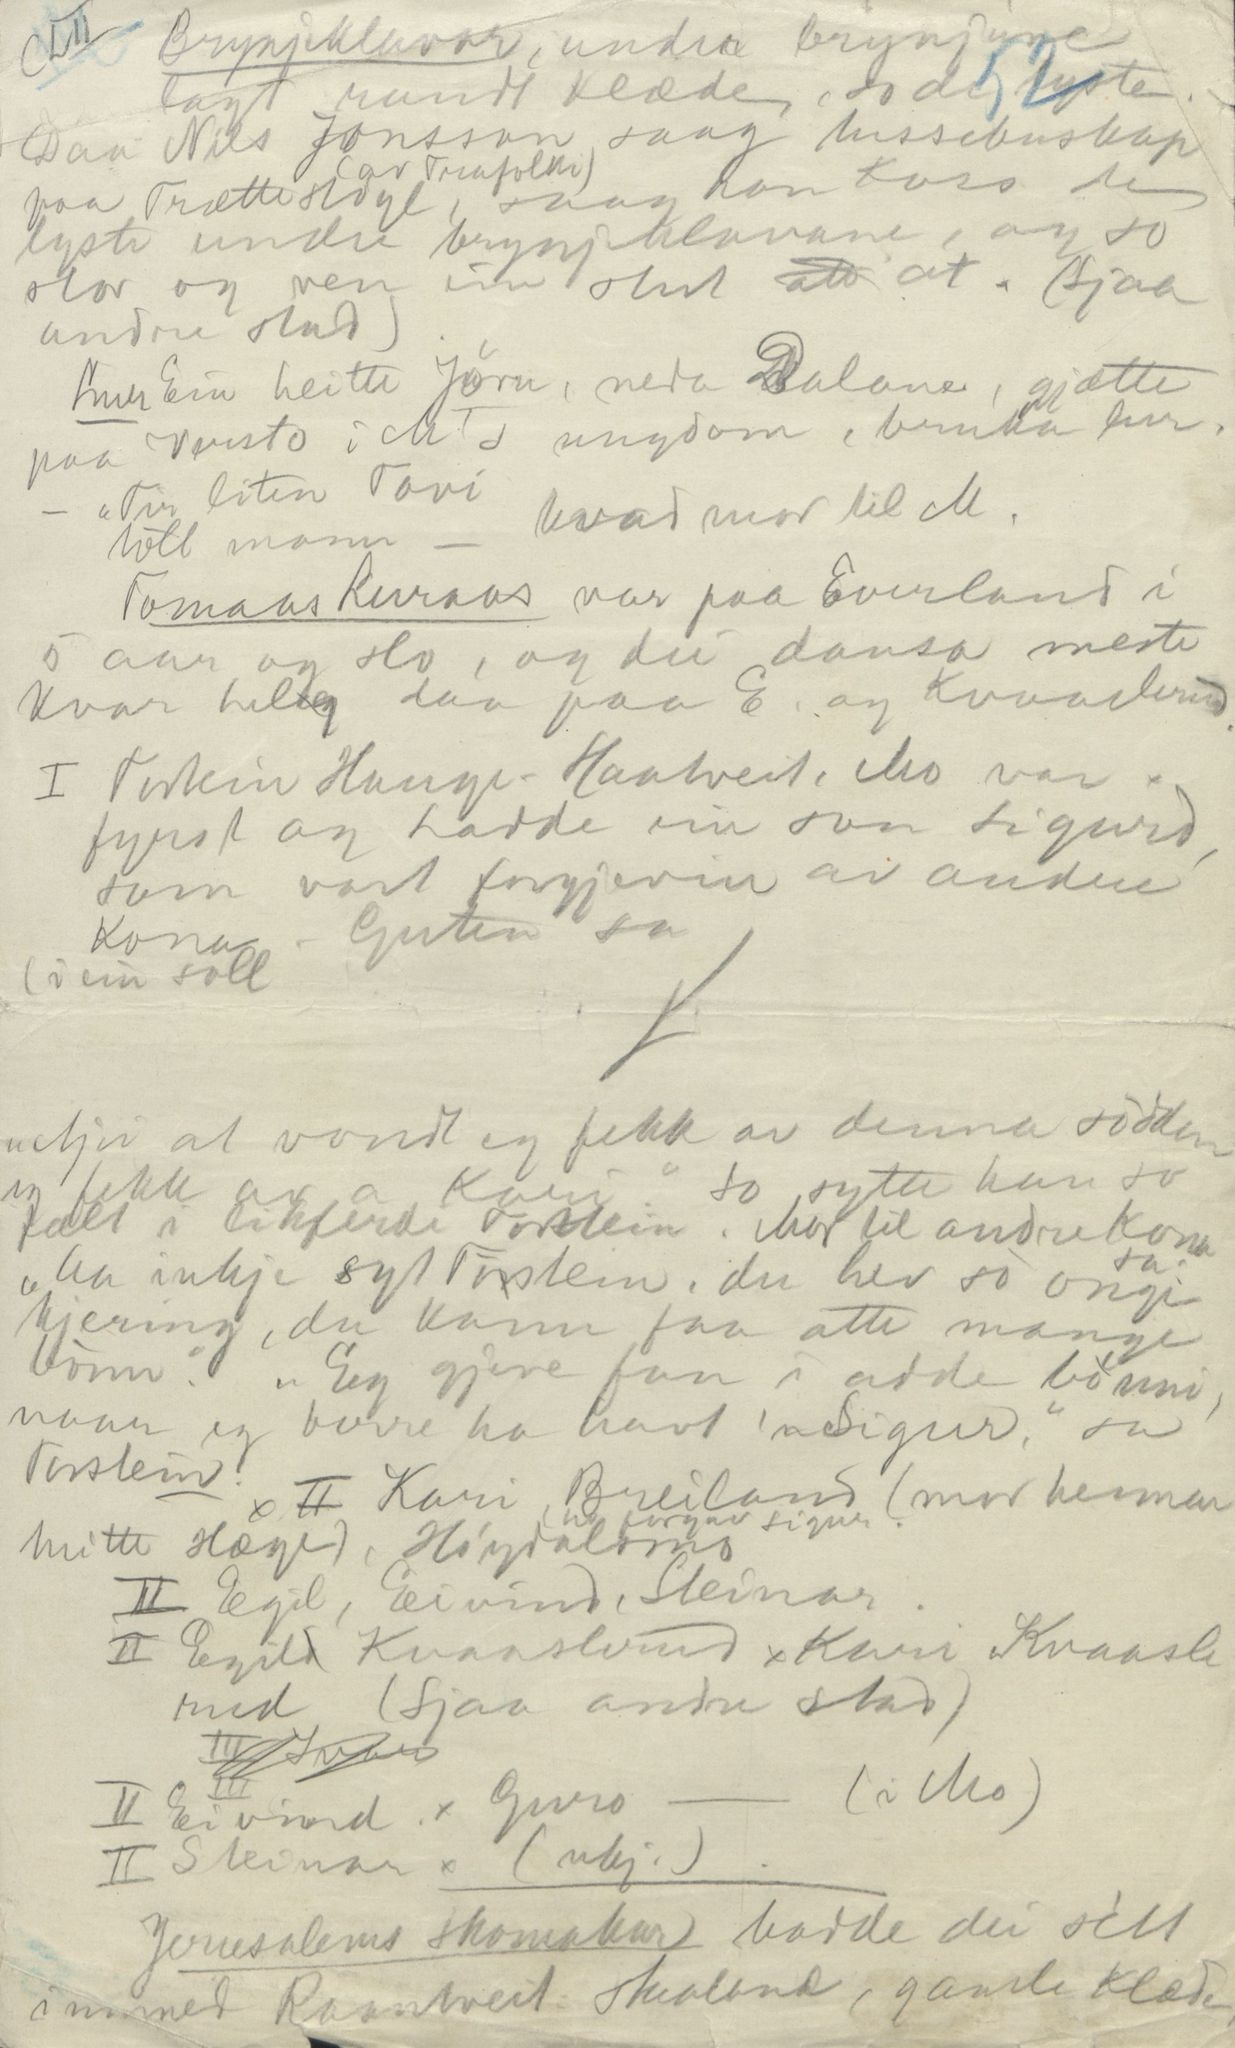 VII Brynjeklavar, undre brynjune
lagt rundt klæde, so dei lyste. 52
Daa Nils Jonsson saag hussebuskap
(av Trufolki)
paa Trætteskoge, saag han koss dei
lyste undre brynjeklavane, og so
stor og ven ein stut at. (Sjaa
andre stad).
Lur Ein heitte Jörn, neda Dalane, gjætte
paa Versto i M T s ungdom, bruka lur.
- "Tir liten Tovi
toll mann — kvad mor til M.
Tomaas Luraas var paa Everland i
5 aar og slo, og dei dansa meste
kvar helg daa paa E. og Kvaaslerud.
I Torstein Hauge-Haatveit, Mo var
fyrst og hadde ein son Sigurd,
som vart forgjevin av andre
kona - Guten sa
(i ein soll
"Mjei at vondt eg fekk av denna södden
eg fekk av a Kari." So sytte han so
fælt i likferdi Torstein. Mor til andre kona
sa:
"Du inkje syt Torstein, du hev so ongi
kjering, du kann faa atte mange
bönn." "Eg gjeve fan i adde bönni,
naar eg berre ha havt 'n Sigur," sa
Torstein.
x II Kari Breiland (mor hennar
ho forgav Sigur.
heitte Hæge), Höydalsmo
II Egil, Eivind, Steinar.
II Egil Kvaaslerud x Kari Kvaasle
rud (Sjaa andre stad)
III
III
II Eivind x Guro —— (i Mo)
II Steinar x (ukj.).
Jerusalems skomakar hadde dei sett
immed Raantveit Skaland, gamle klæde,